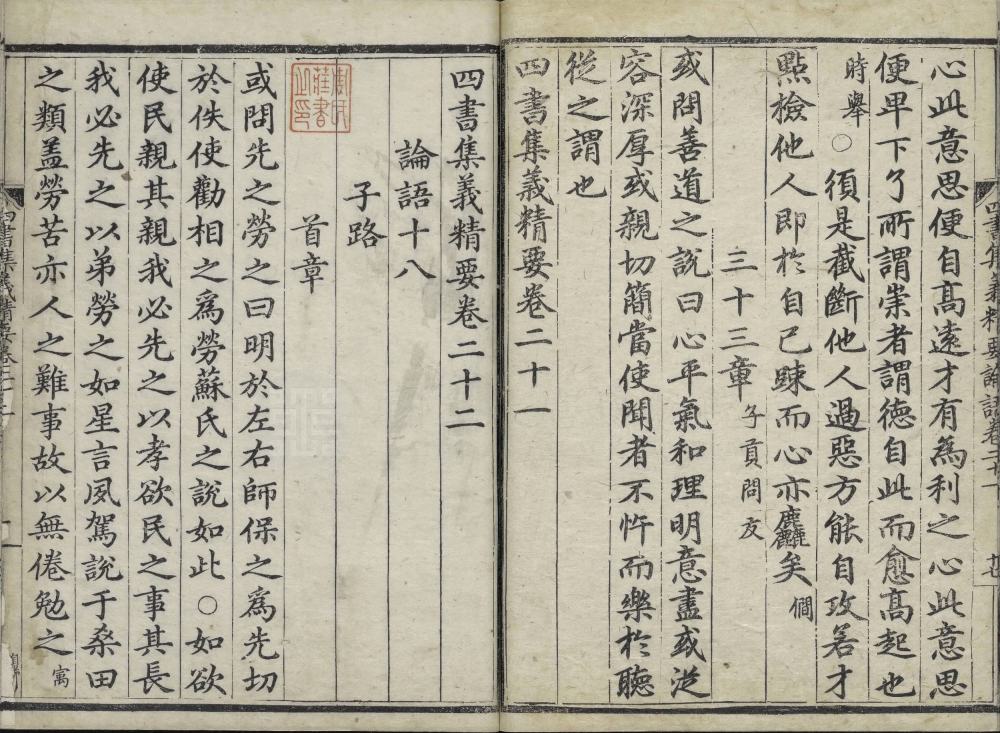 心此意思便自高遠才有為利之心此意思
便卑下了所謂崇者謂德自此而愈高起也
時舉○須是截斷他人過惡方能自攻若才
點檢他人即於自己踈而心亦麤矣僩
三十三章子貢問友
或問善道之說曰心平氣和理明意盡或從
容深厚或親切簡當使聞者不忤而樂於聽
從之謂也
四書集義精要卷二十一
四書集義精要卷二十二
論語十八
子路
首章
或問先之勞之曰明於左右師保之為先切
於佚使勸相之為勞蘇氏之說如此○如欲
使民親其親我必先之以孝欲民之事其長
我必先之以弟勞之如星言夙駕說于桑田
之類盖勞苦亦人之難事故以無倦勉之㝢